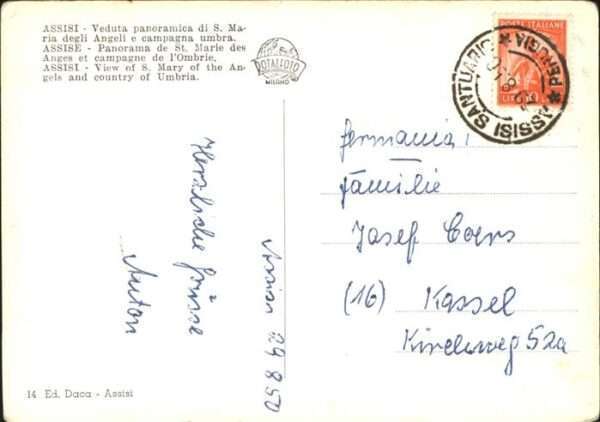 ASSISI - Veduta panoramica di S. Ma-
ria degli Angeli e campagna umbra.
ASSISE - Panorama de St. Marie des
Anges et campagne de l'Ombrie.
ASSISI - View of S. Mary of the An-
gels and country of Umbria.
ROTALFOTO
MILANO
POSTE ITALIANE
ASSISI SANTUARIO
PERUGIA
Herzliche Grüsse
Anton
Assisi 29 8 50
Germania!
Familie
Josef Coers
(16) Kassel
Kirchweg 52a
14 Ed. Daca - Assisi